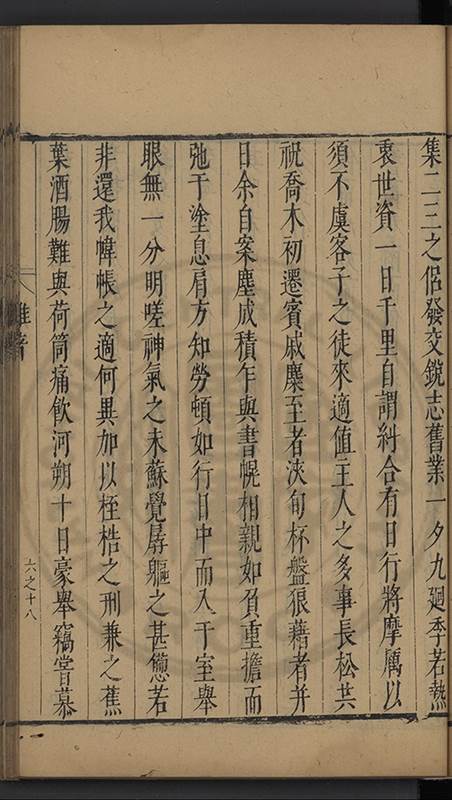 集二三之侶發交銳志舊業一夕九廻季若熱
衷世資一日千里自謂糾合有日行將摩厲以
須不虞客子之徒來適值主人之多事長松共
祝喬木初遷賓戚麇至者浹旬杯盤狼藉者并
日余自案塵成積乍與書幌相親如負重擔而
弛于塗息肩方知勞頓如行日中而入于室舉
眼無一分明嗟神氣之未蘇覺孱軀之甚憊若
非還我幃帳之適何異加以桎梏之刑兼之蕉
葉酒腸難與荷筒痛飲河朔十日豪舉竊嘗慕
雜著
六之十八